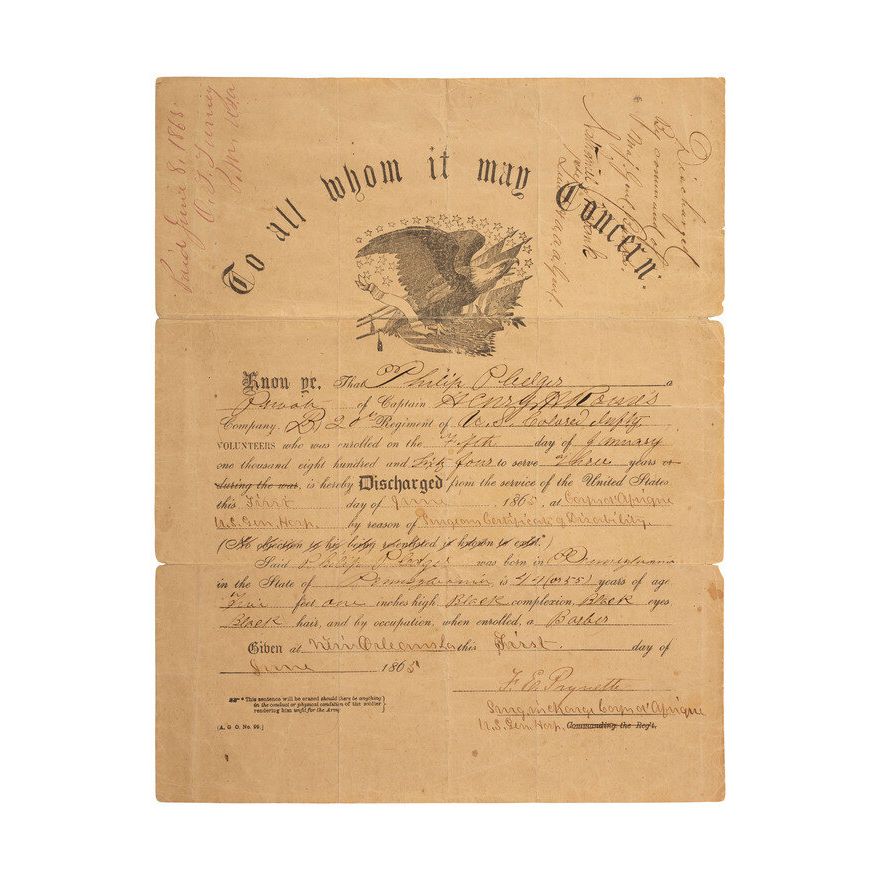 Paid June 8, 1865
To all whom it may Concern.
Discharged
By command of
Know ye, That Philip Pledger a
Private of Captain Henry
Company B, 20th Regiment of U.S. Colored Infty
VOLUNTEERS who was enrolled on the Fifth day of January
one thousand eight hundred and Sixty four to serve Three years or
during the war, is hereby Discharged from the service of the United States
this First day of June, 1865, at Corps d'Afrique
U.S. Gen. Hosp. by reason of Surgeons Certificate of Disability.
(No objection to his being reenlisted is known to exist.*)
Said Philip Pledger was born in Pennsylvania
in the State of Pennsylvania, is 44 (or 55) years of age
feet one inches high, Black complexion, Black eyes
Black hair, and by occupation, when enrolled, a Barber
Given at New Orleans La this First day of
June 1865
Surg. in charge Corps d'Afrique
U.S. Gen. Hosp. Commanding the Reg't.
* This sentence will be erased should there be anything
in the conduct or physical condition of the soldier
rendering him unfit for the Army
[A. G. O. No. 99.]